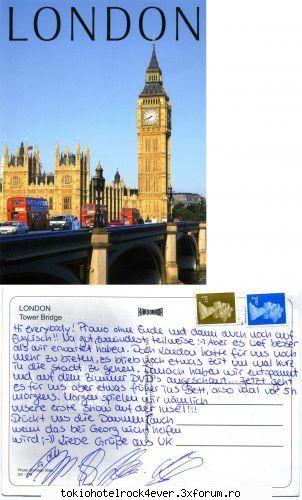 LONDON
LONDON
Tower Bridge
LONDONDON
Hi everybody! Promo ohne Ende und dann auch noch auf
Englisch!! Na gut, zumindest teilweise :-) Aber es lief besser
als wir erwartet haben. Doch London hatte für uns noch
mehr zu bieten, es blieb noch etwas Zeit um mal kurz
in die Stadt zu gehen. Danach haben wir entspannt
und auf dem Zimmer DVD's angeschaut... Jetzt geht
es für uns aber etwas früher ins Bett, also mal vor 5h
morgens. Morgen spielen wir nämlich
unsere erste Show auf der Insel!!!
Drückt uns die Daumen, auch
wenn das bei Georg nicht helfen
wird ;-)) Liebe Grüße aus UK
tokiohotelrock4ever.3xforum.ro